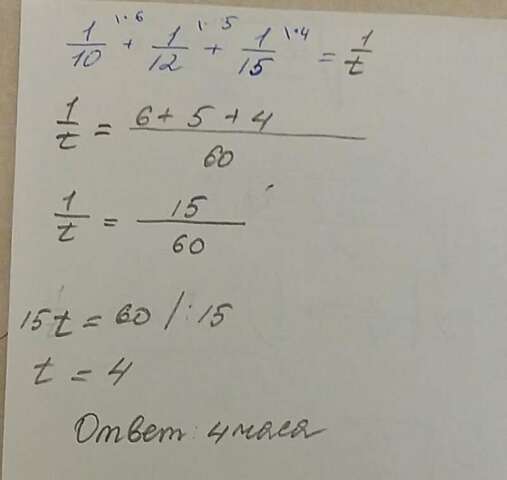 1/10 \·6 + 1/12 \·5 + 1/15 \·4 = 1/t
1/t = (6 + 5 + 4)/60
1/t = 15/60
15t = 60 /:15
t = 4
Ответ: 4 часа